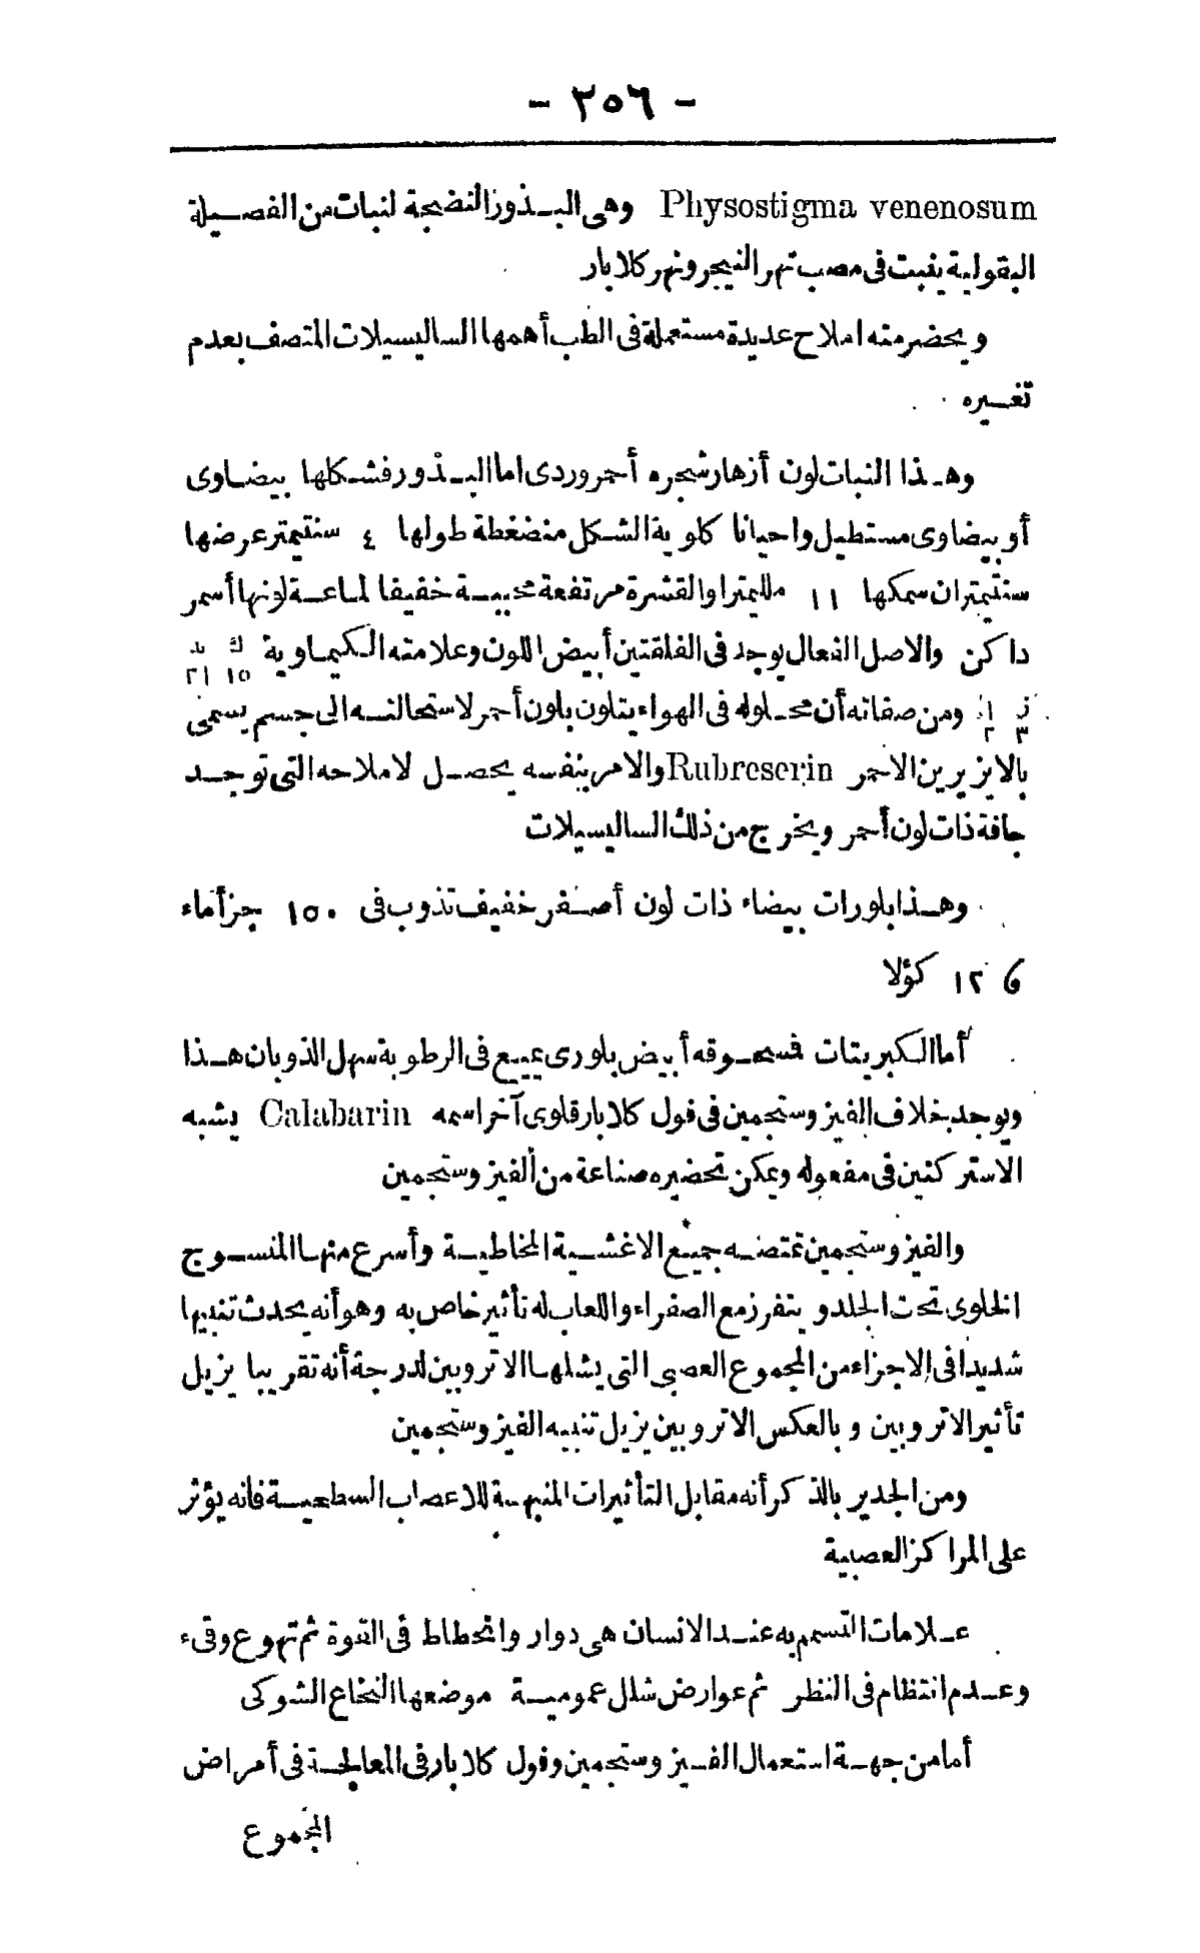 - ٢٥٦ -
Physostigma venenosum وهى البذور النضيجة لنبات من الفصيلة
البقولية ينبت فى مصب نهر النيجر ونهر كلابار
ويحضر منه املاح عديدة مستعملة فى الطب أهمها الساليسيلات المتصف بعدم
تغيره
وهذا النبات لون أزهار شجره أحمر وردى اما البذور فشكلها بيضاوى
أو بيضاوى مستطيل واحيانا كلوية الشكل منضغطة طولها ٤ سنتيمتر عرضها
سنتيمتران سمكها ١١ ملليمترا والقشرة مرتفعة محببة خفيفا لماعة لونها أسمر
داكن والاصل الفعال يوجد فى الفلقتين أبيض اللون وعلامته الكيماوية ك١٥ يد٢١
ز٣ ا٢ ومن صفاته أن محلوله فى الهواء يتلون بلون أحمر لاستحالته الى جسم يسمى
بالايزيرين الاحمر Rubreserin والامر بنفسه يحصل لاملاحه التى توجد
جافة ذات لون أحمر ويخرج من ذلك الساليسيلات
وهذا بلورات بيضاء ذات لون أصفر خفيف تذوب فى ١٥٠ جزأ ماء
و ١٢ كؤلا
أما الكبريتات فمسحوقه أبيض بلورى يميع فى الرطوبة سهل الذوبان هذا
ويوجد بخلاف الفيزوستجمين فى فول كلابار قلوى آخر اسمه Calabarin يشبه
الاستركنين فى مفعوله ويمكن تحضيره صناعة من الفيزوستجمين
والفيزوستجمين تمتصه جميع الاغشية المخاطية وأسرع منها المنسوج
الخلوى تحت الجلد و يتفرز مع الصفراء واللعاب له تأثير خاص به وهو أنه يحدث تنبيها
شديدا فى الاجزاء من المجموع العصبى التى يشلها الاتروبين لدرجة أنه تقريبا يزيل
تأثير الاتروبين وبالعكس الاتروبين يزيل تنبيه الفيزوستجمين
ومن الجدير بالذكر أنه مقابل التأثيرات المنبهة للاعصاب السطحية فانه يؤثر
على المراكز العصبية
علامات التسمم به عند الانسان هى دوار وانحطاط فى القوة ثم تهوع وقىء
وعدم انتظام فى النظر ثم عوارض شلل عمومية موضعها النخاع الشوكى
أما من جهة استعمال الفيزوستجمين وفول كلابار فى المعالجة فى أمراض
المجموع